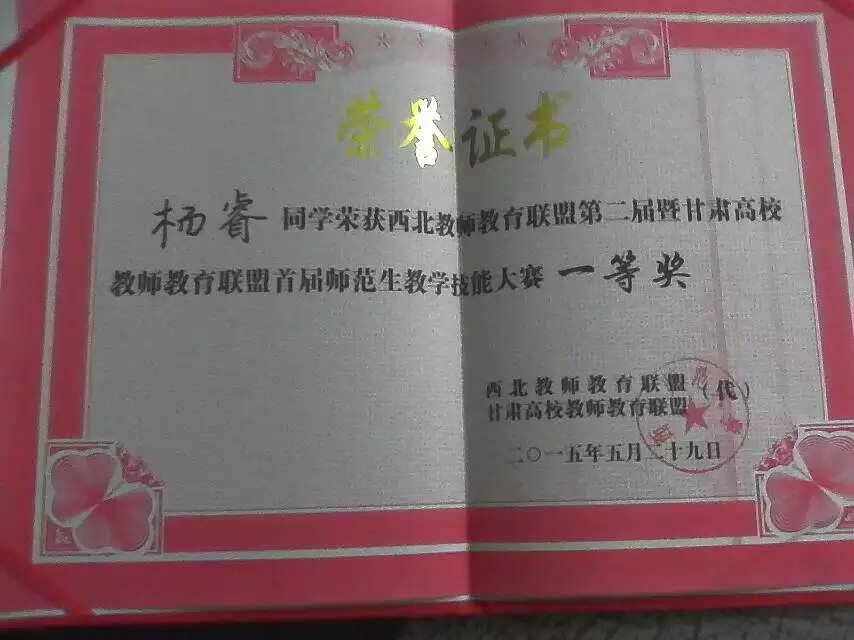 荣誉证书
杨睿 同学荣获西北教师教育联盟第二届暨甘肃高校
教师教育联盟首届师范生教学技能大赛 一等奖
西北教师教育联盟
甘肃高校教师教育联盟 (代)
二〇一五年五月二十九日